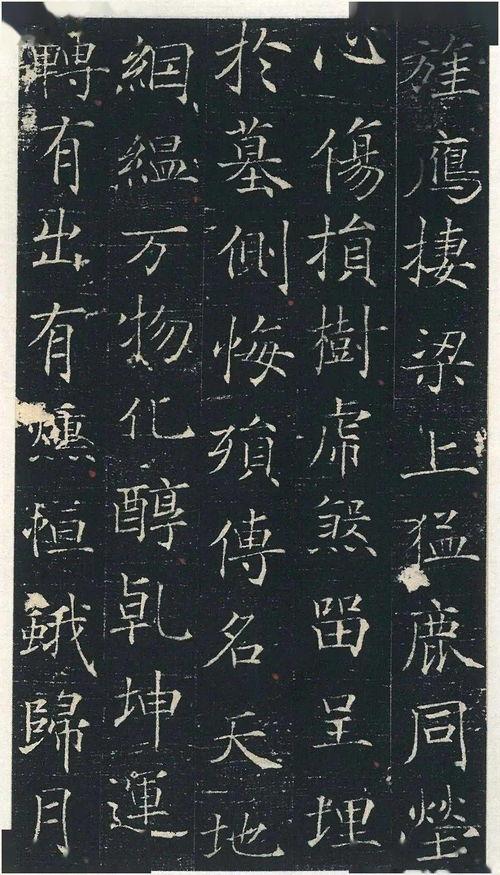 旌鷹棲梁上猛鹿同塋
心傷損樹虎煞留呈埋
於墓側悔殞傳名天地
絪縕万物化醇乹坤運
聘有出有燻恒蛾歸月